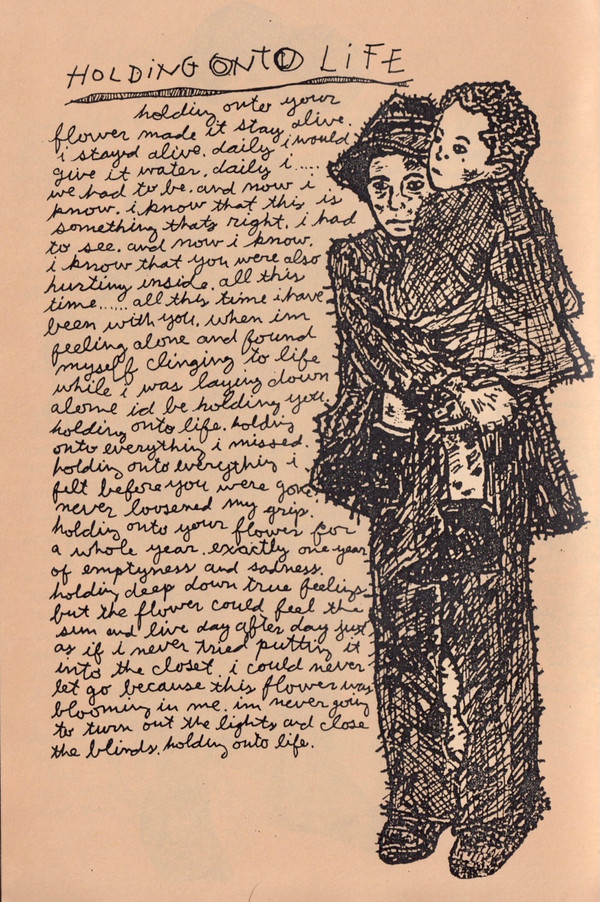 HOLDING ONTO LIFE
holding onto your
flower made it stay alive.
i stayed alive. daily i would
give it water. daily i.....
we had to be. and now i
know. i know that this is
something thats right. i had
to see. and now i know.
i know that you were also
hurting inside. all this
time...... all this time i have
been with you. when im
feeling alone and found
myself clinging to life
while i was laying down
alone id be holding you.
holding onto life. holding
onto everything i missed.
holding onto everything i
felt before you were gone.
never loosened my grip.
holding onto your flower for
a whole year. exactly one year
of emptyness and sadness.
holding deep down true feelings
but the flower could feel the
sun and live day after day just
as if i never tried putting it
into the closet. i could never
let go because this flower was
blooming in me. im never going
to turn out the lights and close
the blinds. holding onto life.